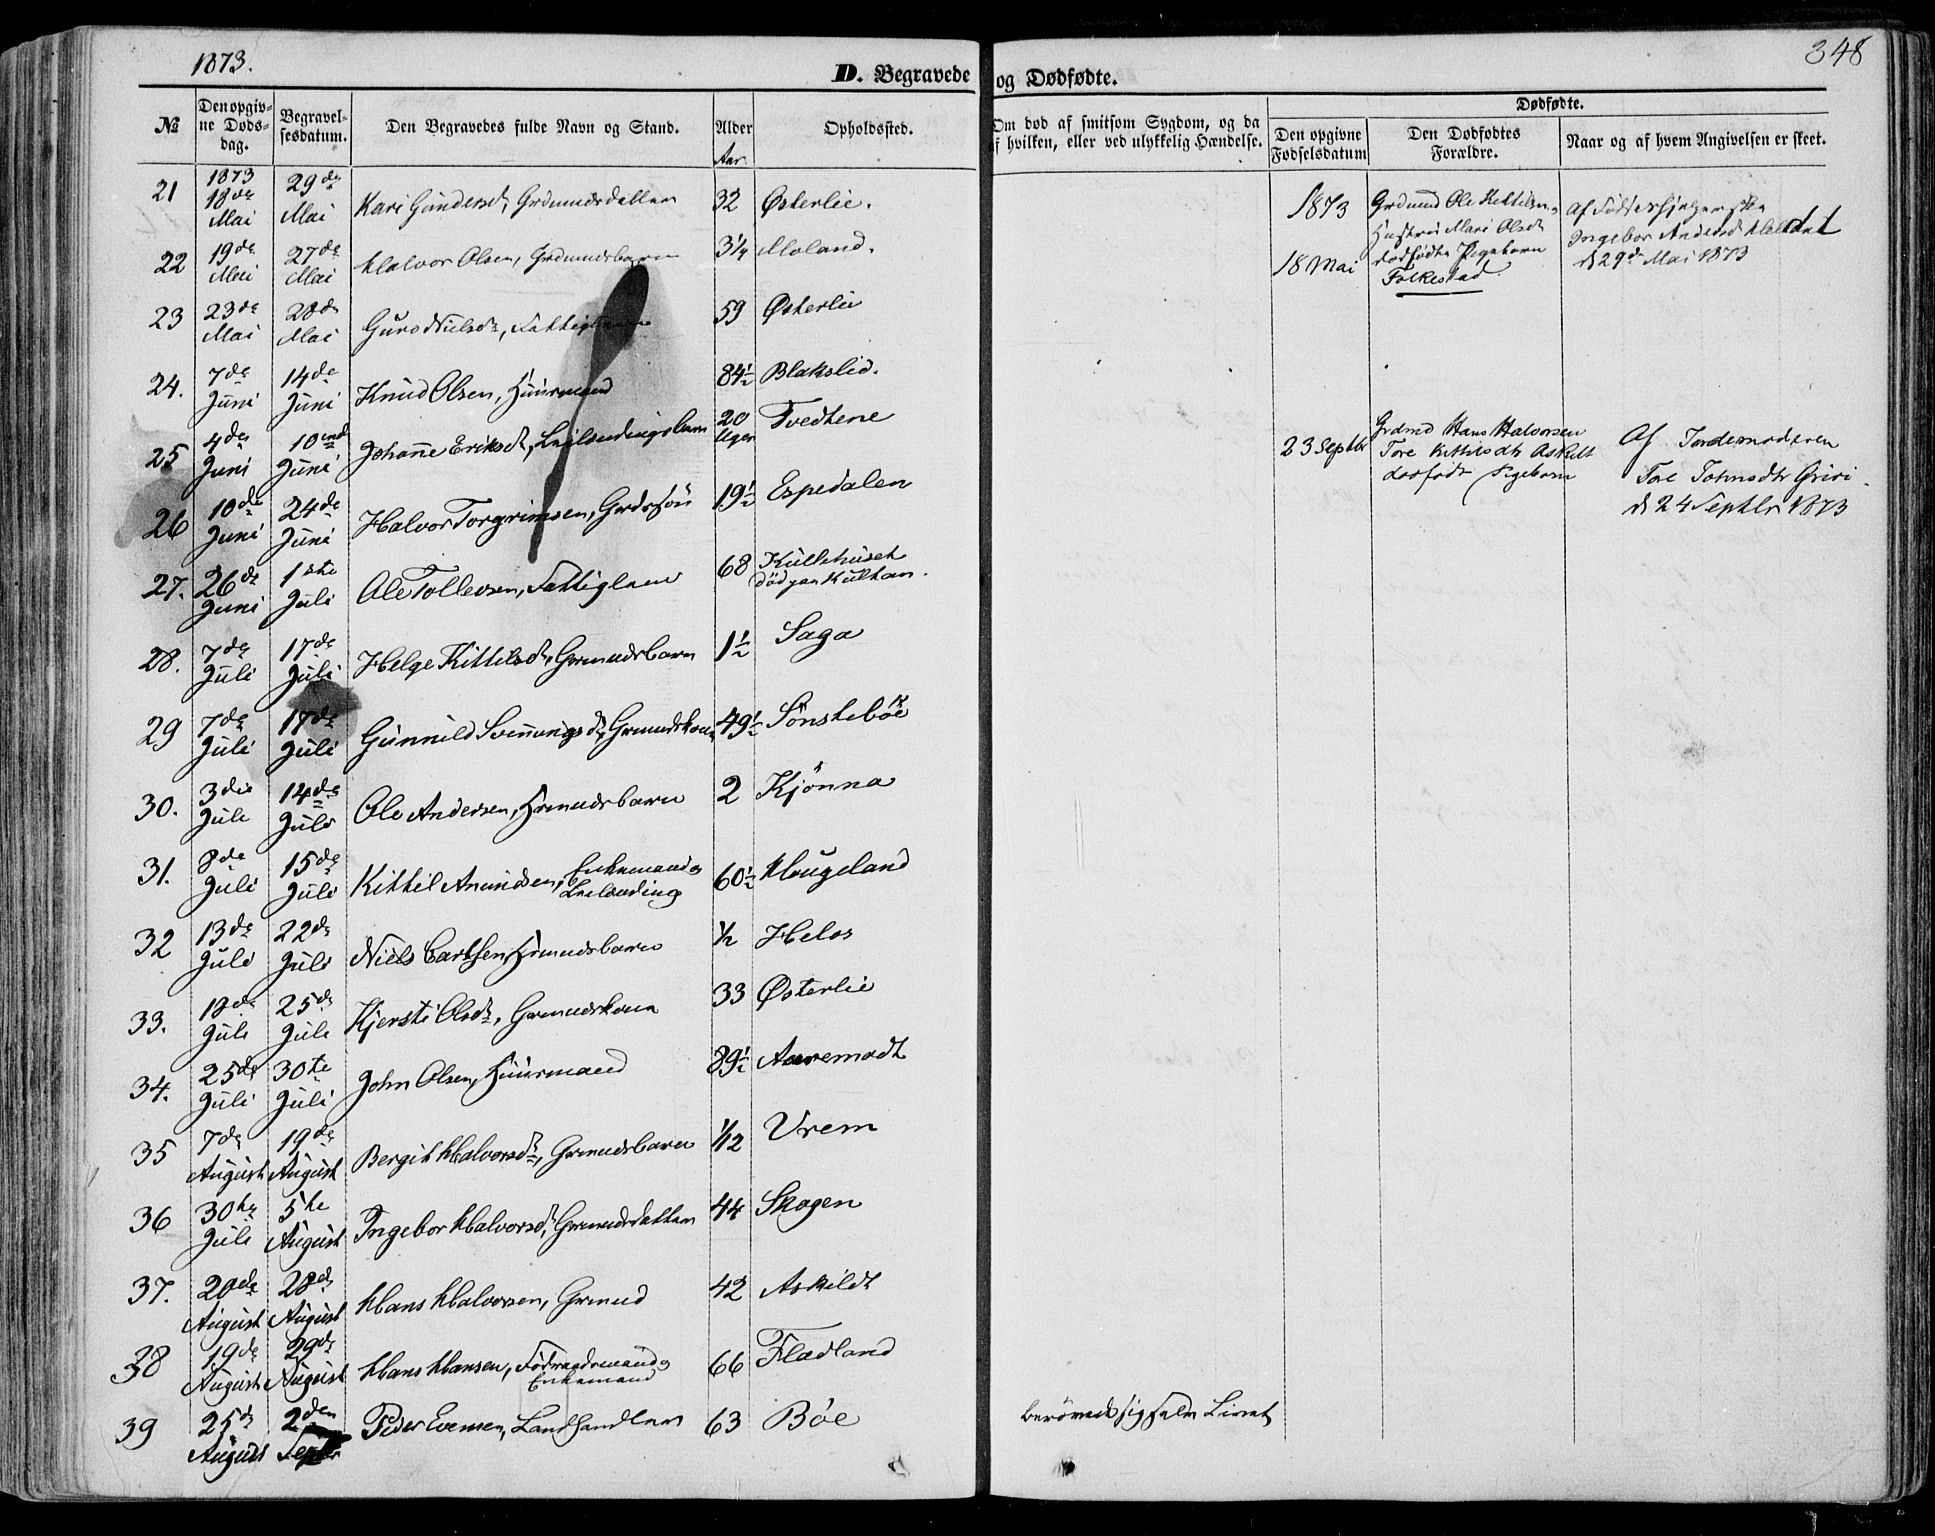 1873.
D. Begravede og Dødfødte.
348
№
Den opgivne Dødsdag.
Begravelsesdatum.
Den Begravedes fulde Navn og Stand.
Alder
Aar
Opholdssted.
Om død af smitsom Sygdom, og da af hvilken, eller ved ulykkelig Hændelse.
Dødfødte.
Den opgivne Fødselsdatum
Den Dødfødtes Forældre.
Naar og af hvem Angivelsen er skeet.
21 1873 18de Mai 29de Mai Kari Gundersd, Grdmandsdatter 32 Østerlie.
22 19de Mai 27de Mai Halvor Olsen, Grdmandsbarn 3¼ Moland.
23 23de Mai 28de Mai Guro Nielsdr, Fattiglem 59 Østerlie
24. 7de Juni 14de Juni Knud Olsen, Huusmand 84½ Blakslid.
25 4de Juni 10nd Juni Johanne Eriksdr, Leilendingsbarn 20 Uger Tvedtene
26 10de Juni 24de Juni Halvor Torgrimsen, Grdrsøn 19½ Espedalen
27. 26de Juni 1ste Juli Ole Tollevsen, Fattiglem 68 Kultehuset
28. 7de Juli 17de Juli Helge Kittelsdr, Grmandsbarn 1½ Saga
29 7de Juli 17de Juli Gunnild Svennungsdr, Grmandskone 49½ Sønstebøe
30. 3die Juli 14de Juli Ole Andersen, Hsmandsbarn 2 Kjønna
31. 8de Juli 15de Juli Kittil Amundsen, Enkemand og Leilending 60½ Haugeland
32 13de Juli 22de Juli Niels Hsmandsbarn ½ Helos
33. 18de Juli 25de Juli Kjersti Olsdr, Grmandskone 33 Østerlie
34. 25de Juli 30te Juli John Olsen, Huusmand 89½ Aaremodt
35 7de August 19de August Bergit Halvorsdr, Grmandsbarn 1/12 Vrem
36 30te Juli 5te August Ingebor Halvorsdr, Grmandsdatter 44 Skogen
37. 20de August 28de August Hans Halvorsen, Grmand 42 Askildt
38 19de August 29de August Hans Hansen, Fødraadsmand og Enkemand 66 Fladland
39 25de August 2den Septbr Peder Evensen, Landhandler 63 Bøe berøvede sig selv Livet
1873
18 Mai
Grdmd Ole Kittilsen,
Hustru Mari Olsdr
dødfødte Pigebarn
Folkestad
Af
Ingebor Andersd
d 29de Mai 1873
23 Septbr
Grdmd Hans Halvorsen
Tore Kittilsdtr Askilt
dødfødt Pigebarn
Af Jordemoderen
Tore Johnsdtr Grivi
d 24 Septbr 1873